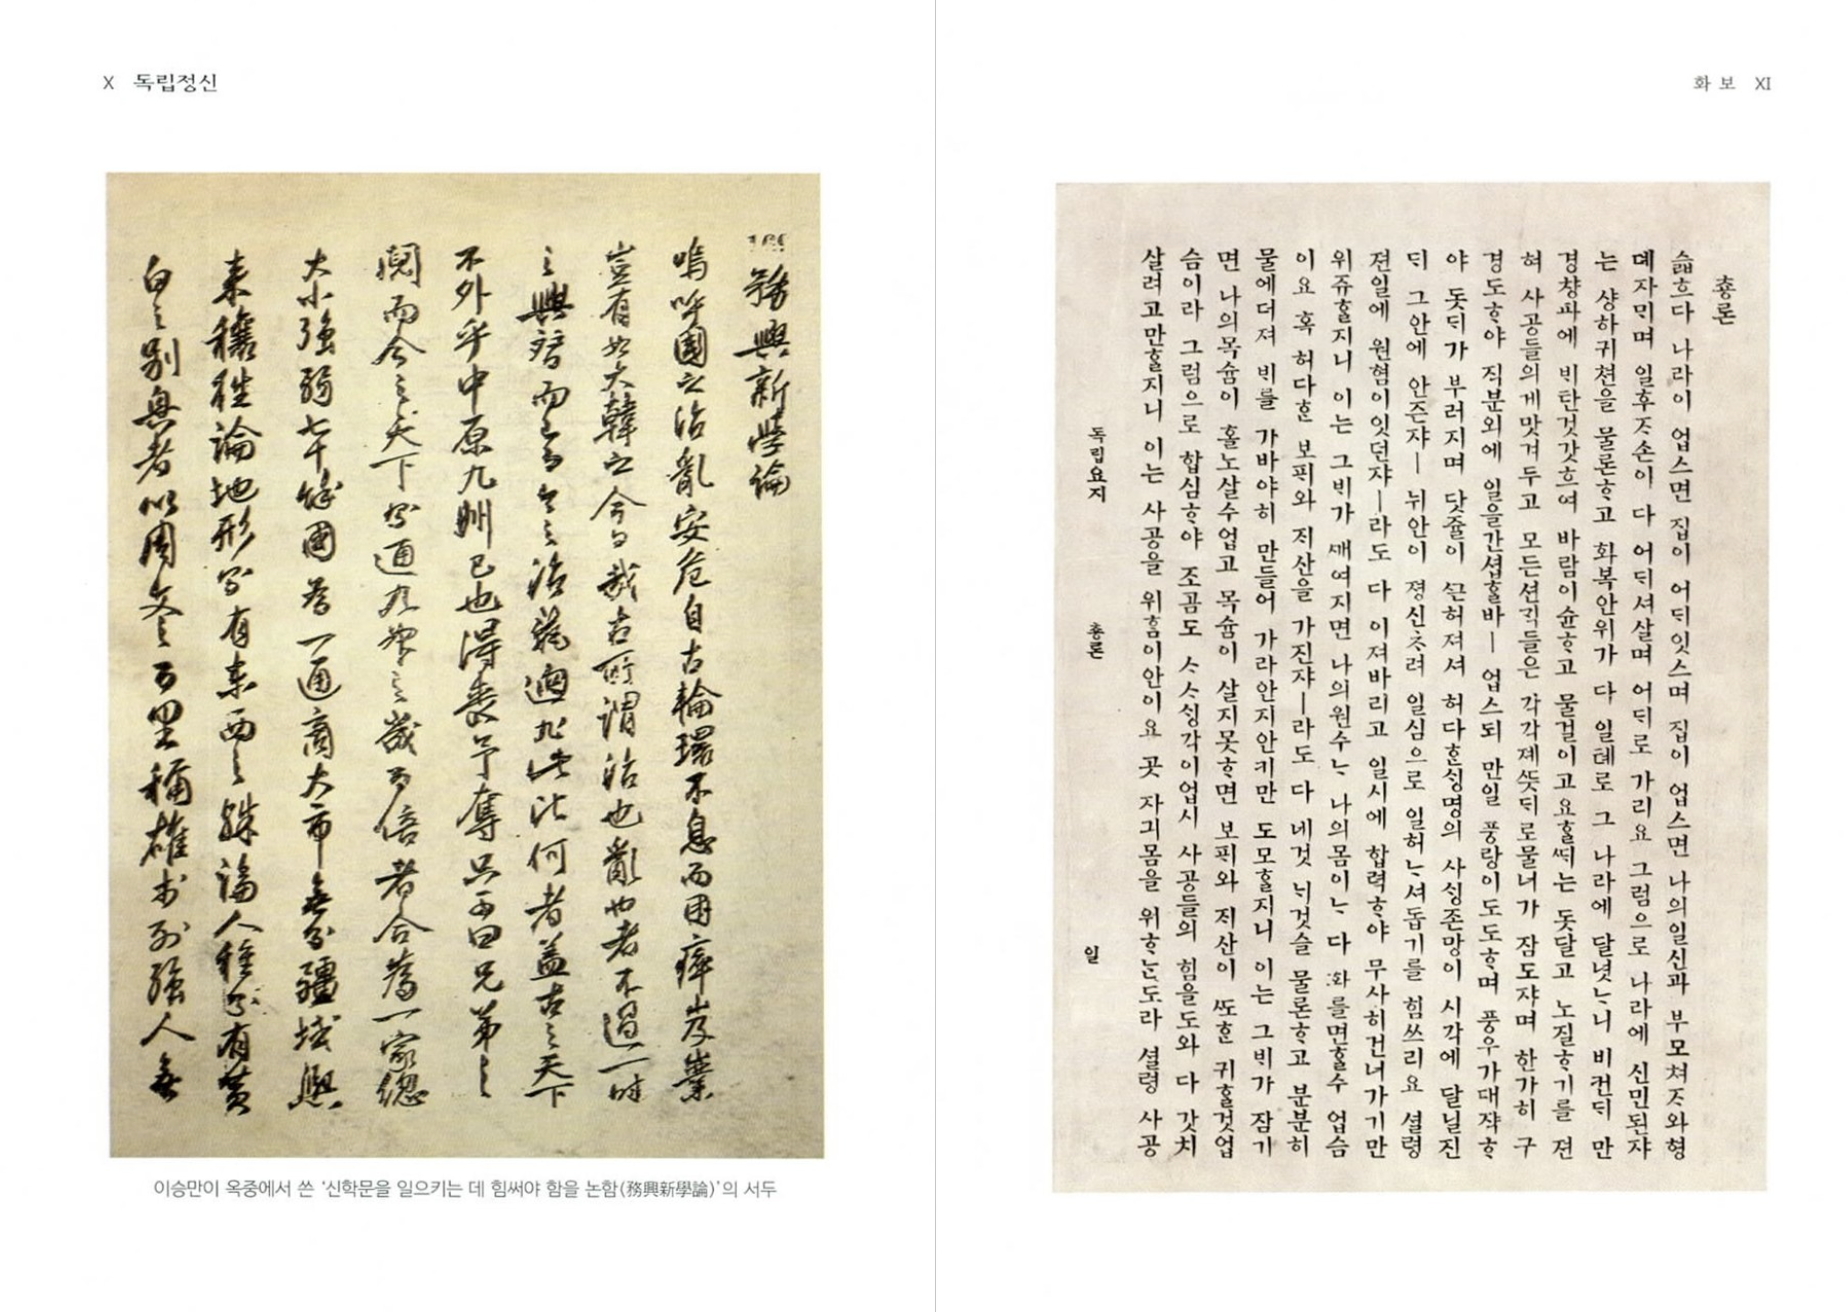 X 독립정신
務興新學論
嗚呼國之治亂安危自古輪環不息而困瘁岌嶪
豈有如大韓之今日哉古所謂治也亂也者不過一時
之興替而已今之治亂適 比何者盖古之天下
不外乎中原九州已也得喪予奪只不曰兄弟之
鬩而今之天下則通九 之 百倍者合爲一家總
大小强弱七十餘國若一通商大市無分疆域與
來 論地形則有東西之殊論人種則有黃
白之別 者以周文之百里稱雄於列强人無
이승만이 옥중에서 쓴 ‘신학문을 일으키는 데 힘써야 함을 논함(務興新學論)’의 서두
화 보 XI
춍론
슯흐다 나라이 업스면 집이 어ᄃᆡ잇스며 집이 업스면 나의일신과 부모쳐ᄌᆞ와형
뎨자ᄆᆡ며 일후ᄌᆞ손이 다 어ᄃᆡ셔살며 어ᄃᆡ로 가리요 그럼으로 나라에 신민된쟈
는 샹하귀쳔을 물론ᄒᆞ고 화복안위가 다 일톄로 그 나라에 달녓ᄂᆞ니 비컨ᄃᆡ 만
경챵파에 ᄇᆡ탄것갓흐여 바람이슌ᄒᆞ고 물결이고요ᄒᆞᆯᄯᆡ는 돗달고 노질ᄒᆞ기를 젼
혀 사공들의게맛겨두고 모든션ᄀᆡᆨ들은 각각졔ᄯᅳᆺᄃᆡ로물너가 잠도쟈며 한가히 구
경도ᄒᆞ야 직분외에 일을간셥ᄒᆞᆯ바ㅣ 업스되 만일 풍랑이도도ᄒᆞ며 풍우가대쟉ᄒᆞ
야 돗ᄃᆡ가 부러지며 닷쥴이 ᄭᅳᆫ허져셔 허다ᄒᆞᆫᄉᆡᆼ명의 사ᄉᆡᆼ존망이 시각에 달닐진
ᄃᆡ 그안에 안즌쟈ㅣ 뉘안이 졍신ᄎᆞ려 일심으로 일허ᄂᆞ셔돕기를 힘쓰리요 셜령
젼일에 원혐이잇던쟈ㅣ라도 다 이져바리고 일시에 합력ᄒᆞ야 무사히건너가기만
위쥬ᄒᆞᆯ지니 이는 그ᄇᆡ가 ᄭᆡ여지면 나의원수ᄂᆞ 나의몸이ᄂᆞ 다 화를면ᄒᆞᆯ수 업슴
이요 혹 허다ᄒᆞᆫ 보ᄑᆡ와 ᄌᆡ산을 가진쟈ㅣ라도 다 네것 ᄂᆡ것슬 물론ᄒᆞ고 분분히
물에더져 ᄇᆡ를 가바야히 만들어 가라안지안키만 도모ᄒᆞᆯ지니 이는 그ᄇᆡ가 잠기
면 나의목슘이 홀노살수업고 목슘이 살지못ᄒᆞ면 보ᄑᆡ와 ᄌᆡ산이 ᄯᅩᄒᆞᆫ 귀ᄒᆞᆯ것업
슴이라 그럼으로 합심ᄒᆞ야 조곰도 ᄉᆞᄉᆞᄉᆡᆼ각이업시 사공들의 힘을도와 다 갓치
살려고만ᄒᆞᆯ지니 이는 사공을 위ᄒᆞᆷ이안이요 곳 자긔몸을 위ᄒᆞᄂᆞᆫ도라 셜령 사공
독립요지 춍론 일